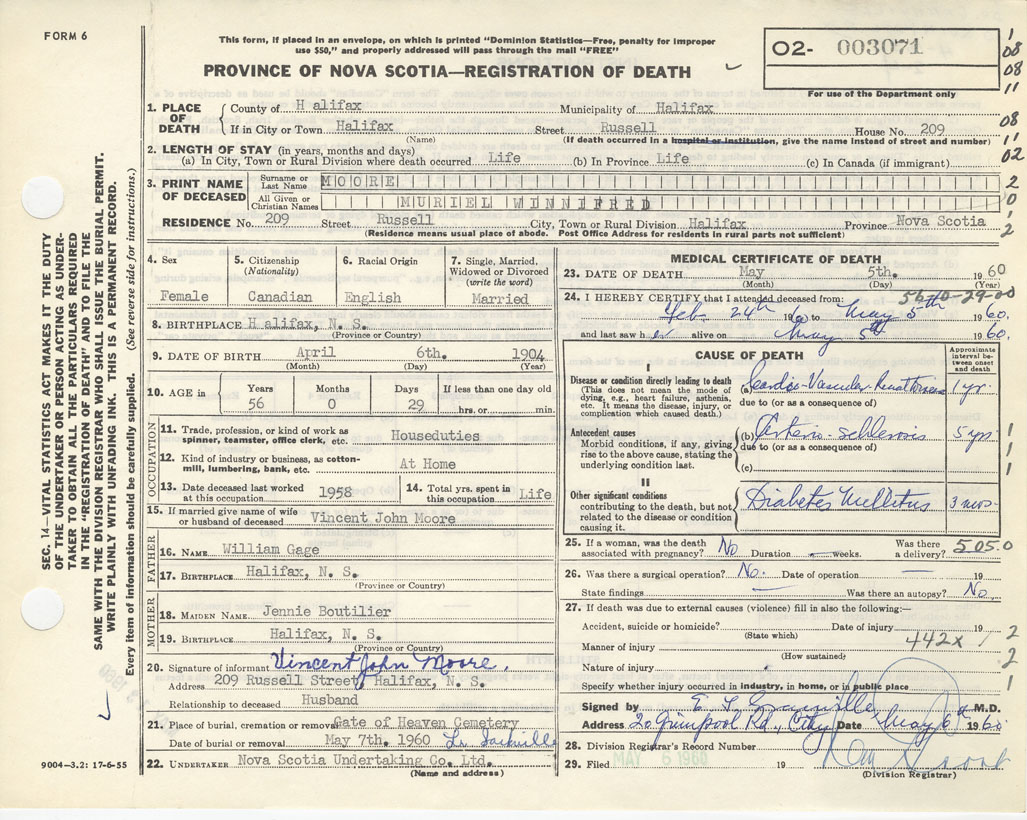 FORM 6
This form, if placed in an envelope, on which is printed "Dominion Statistics—Free, penalty for improper
use $50," and properly addressed will pass through the mail "FREE"
PROVINCE OF NOVA SCOTIA—REGISTRATION OF DEATH
02- 003071
For use of the Department only
1
08
08
11
08
1
02
2
0
2
SEC. 14—VITAL STATISTICS ACT MAKES IT THE DUTY
OF THE UNDERTAKER OR PERSON ACTING AS UNDER-
TAKER TO OBTAIN ALL THE PARTICULARS REQUIRED
IN THE "REGISTRATION OF DEATH" AND TO FILE THE
SAME WITH THE DIVISION REGISTRAR WHO SHALL ISSUE THE BURIAL PERMIT.
WRITE PLAINLY WITH UNFADING INK. THIS IS A PERMANENT RECORD.
Every item of information should be carefully supplied. (See reverse side for instructions.)
1. PLACE OF DEATH
County of H alifax Municipality of Halifax
If in City or Town Halifax Street Russell House No. 209
(Name) (If death occurred in a hospital or institution, give the name instead of street and number)
2. LENGTH OF STAY (in years, months and days)
(a) In City, Town or Rural Division where death occurred Life (b) In Province Life (c) In Canada (if immigrant)
3. PRINT NAME OF DECEASED
Surname or Last Name MOORE
All Given or Christian Names MURIEL WINNIFRED
RESIDENCE No. 209 Street Russell City, Town or Rural Division Halifax Province Nova Scotia
(Residence means usual place of abode. Post Office Address for residents in rural parts not sufficient)
4. Sex
Female
5. Citizenship
(Nationality)
Canadian
6. Racial Origin
English
7. Single, Married,
Widowed or Divorced
(write the word)
Married
8. BIRTHPLACE H alifax, N. S.
(Province or Country)
9. DATE OF BIRTH April 6th. 1904
(Month) (Day) (Year)
10. AGE in
Years Months Days If less than one day old
56 0 29 hrs. or min.
OCCUPATION
11. Trade, profession, or kind of work as
spinner, teamster, office clerk, etc. Houseduties
12. Kind of industry or business, as cotton-
mill, lumbering, bank, etc. At Home
13. Date deceased last worked
at this occupation 1958
14. Total yrs. spent in
this occupation Life
15. If married give name of wife
or husband of deceased Vincent John Moore
FATHER
16. NAME William Gage
17. BIRTHPLACE Halifax, N. S.
(Province or Country)
MOTHER
18. MAIDEN NAME Jennie Boutilier
19. BIRTHPLACE Halifax, N. S.
(Province or Country)
20. Signature of informant Vincent John Moore.
Address 209 Russell Street, Halifax, N. S.
Relationship to deceased Husband
21. Place of burial, cremation or removal Gate of Heaven Cemetery
Date of burial or removal May 7th. 1960 Lr. Sackville
22. UNDERTAKER Nova Scotia Undertaking Co. Ltd.
(Name and address)
9004—3.2: 17-6-55
MEDICAL CERTIFICATE OF DEATH
23. DATE OF DEATH May 5th. 1960
(Month) (Day) (Year)
56-0-29-00
24. I HEREBY CERTIFY that I attended deceased from:
Feb. 24th 1960 to May 5th 1960.
and last saw h er alive on May 5th 1960.
CAUSE OF DEATH
Approximate
interval be-
tween onset
and death
I
Disease or condition directly leading to death
(This does not mean the mode of
dying, e.g., heart failure, asthenia,
etc. It means the disease, injury, or
complication which caused death.)
(a) Cardio-Vascular 1 yr.
due to (or as a consequence of)
Antecedent causes
Morbid conditions, if any, giving
rise to the above cause, stating the
underlying condition last.
(b) Arterio-sclerosis 5 yrs
due to (or as a consequence of)
(c)
1
1
1
II
Other significant conditions
contributing to the death, but not
related to the disease or condition
causing it.
Diabetes Mellitus 3 mos.
25. If a woman, was the death
associated with pregnancy? No Duration — weeks. Was there
a delivery? 505.0
26. Was there a surgical operation? No. Date of operation — 19
State findings — Was there an autopsy? No.
27. If death was due to external causes (violence) fill in also the following:—
Accident, suicide or homicide? Date of injury 19
(State which)
Manner of injury 442x
(How sustained)
Nature of injury
Specify whether injury occurred in industry, in home, or in public place
1
2
2
1
Signed by M.D.
Address 20 Rd., City Date May 6th 1960
28. Division Registrar's Record Number
29. Filed MAY 6 1960 19
(Division Registrar)